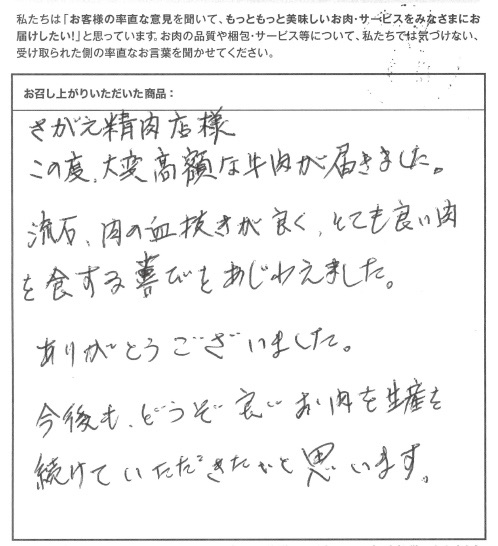 私たちは「お客様の率直な意見を聞いて、もっともっと美味しいお肉・サービスをみなさまにお
届けしたい!」と思っています。お肉の品質や梱包・サービス等について、私たちでは気づけない、
受け取られた側の率直なお言葉を聞かせてください。
お召し上がりいただいた商品:
さがえ精肉店様
この度、大変高額な牛肉が届きました。
流石、肉の血抜きが良く、とても良い肉
を食する喜びをあじわえました。
ありがとうございました。
今後も、どうぞ良いお肉を生産を
続けていただきたいと思います。